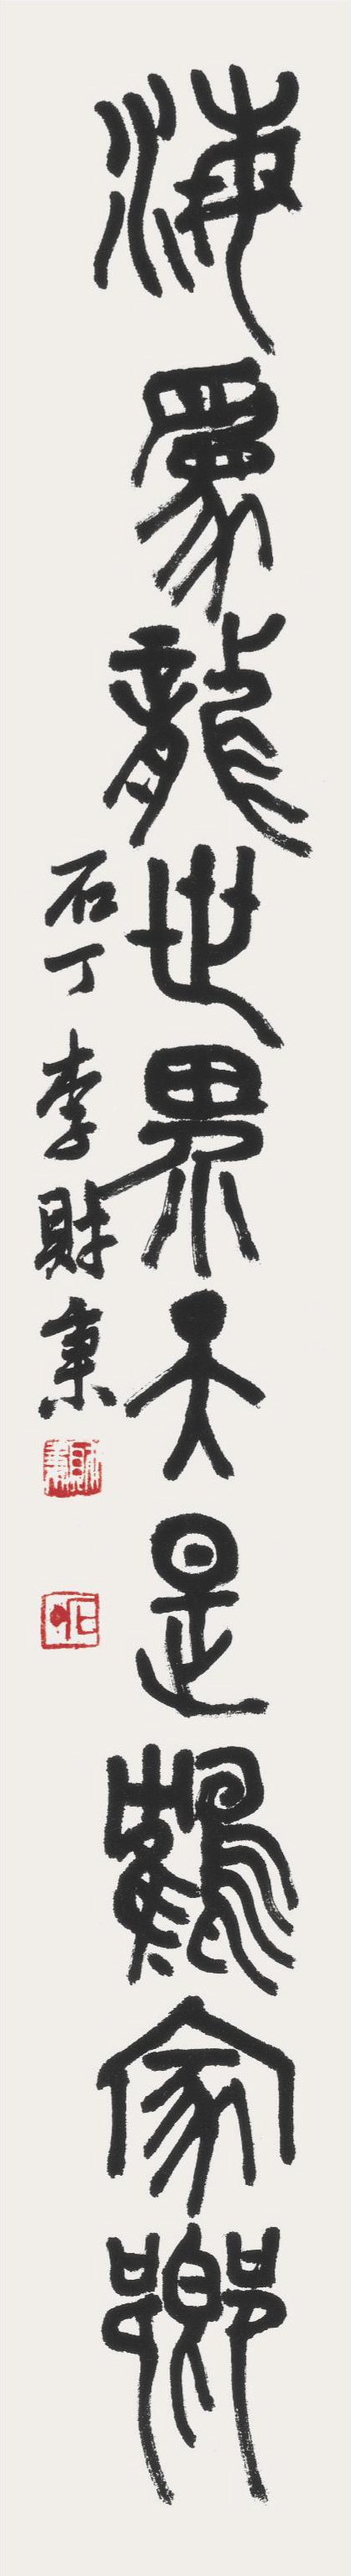 海為龍世界天是鶴家鄉
石丁李財秉